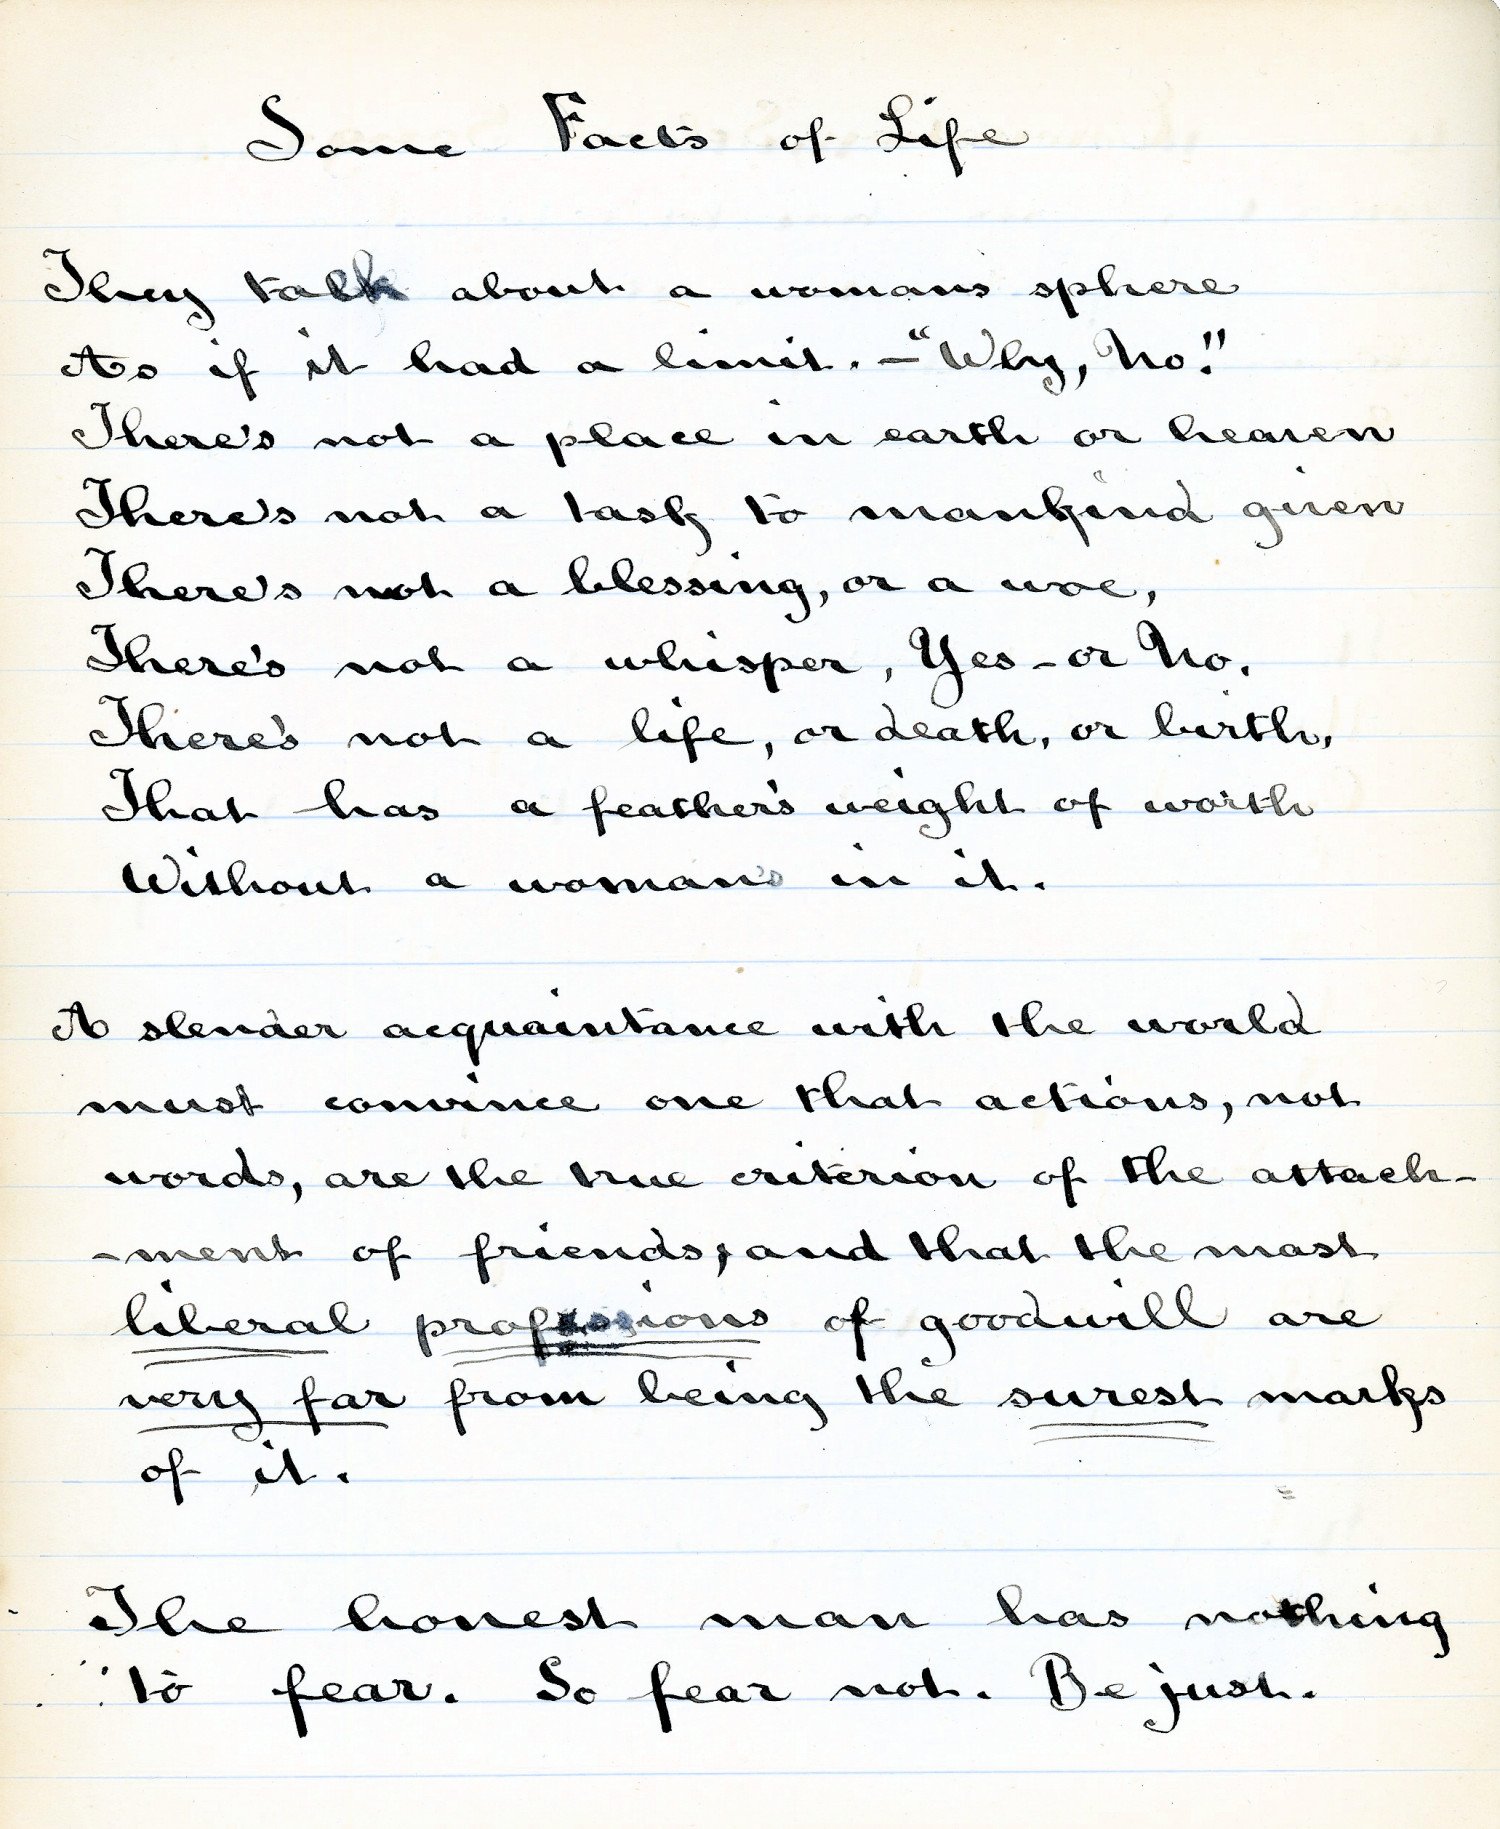 Some Facts of Life
They talk about a woman's sphere
As if it had a limit. – "Why, No!"
There's not a place in earth or heaven
There's not a task to mankind given
There's not a blessing, or a woe,
There's not a whisper, Yes – or No.
There's not a life, or death, or birth,
That has a feather's weight of worth
Without a woman's in it.
A slender acquaintance with the world
must convince one that actions, not
words, are the true criterion of the attach-
-ment of friends, and that the most
liberal professions of goodwill are
very far from being the surest marks
of it.
The honest man has nothing
to fear. So fear not. Be just.